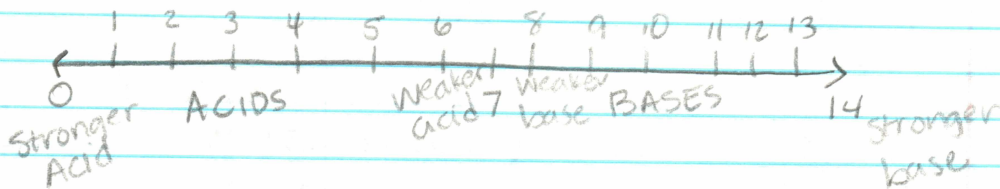 1 2 3 4 5 6 8 9 10 11 12 13
0 ACIDS Weaker acid 7 Weaker base BASES 14
Stronger Acid
stronger base